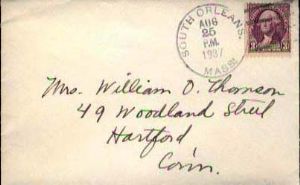 SOUTH ORLEANS.
AUG
25
P.M.
1937
MASS.
3
Mrs. William O. Thomson
49 Woodland Street
Hartford
Conn.